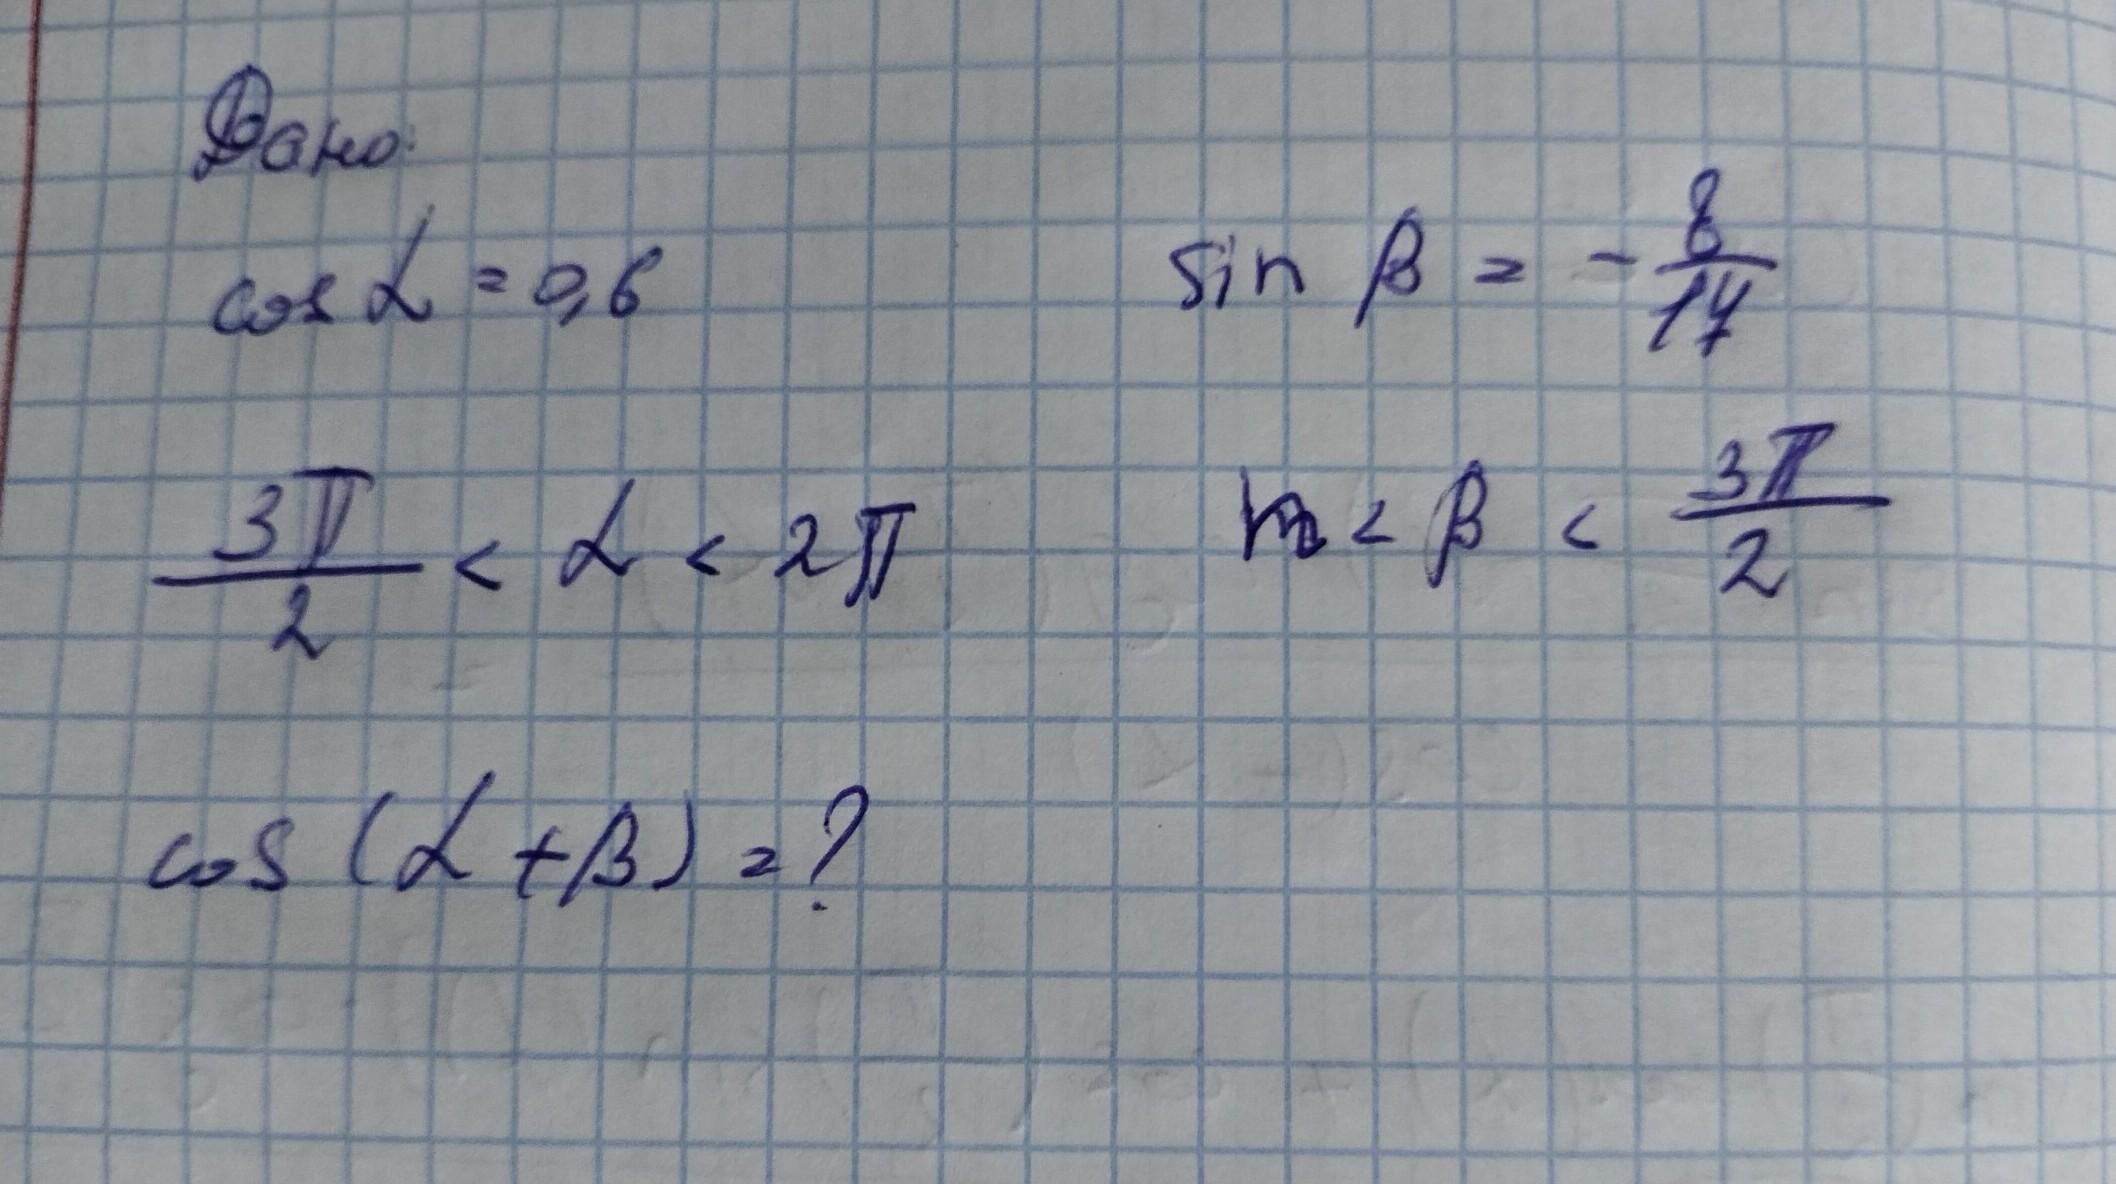 Дано:
cos α = 0,6
sin β = - 8/17
3π/2 < α < 2π
π < β < 3π/2
cos (α + β) = ?